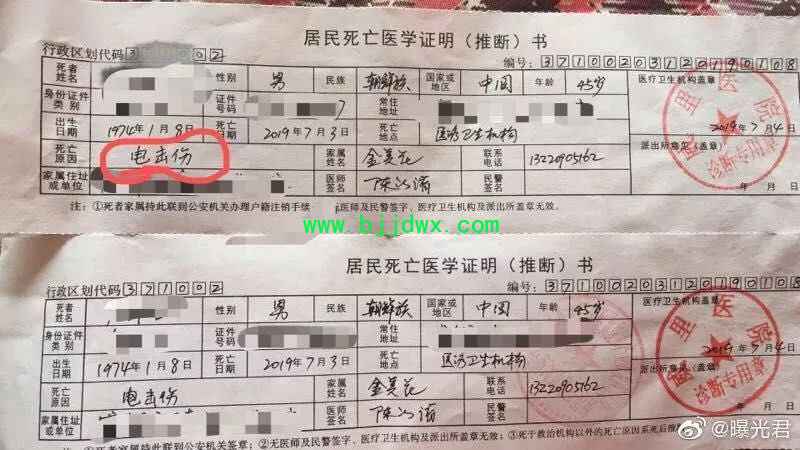 居民死亡医学证明（推断）书
行政区划代码 3 1 0 0 2 编号： 3 7 1 0 0 2 0 3 1 2 0 1 9 0 1 0 8
死者姓名 性别 男 民族 朝鲜族 国家或地区 中国 年龄 45岁 医疗卫生机构盖章
身份证件类别 证件号码 常住地址
出生日期 1974年1月8日 死亡日期 2019年7月3日 死亡地点 医疗卫生机构 2019年7月4日
死亡原因 电击伤 家属姓名 金美花 联系电话 13220905162 派出所意见（盖章）
家属住址或单位 医师签名 民警签名 年 月 日
注：①死者家属持此联到公安机关办理户籍注销手续 医师及民警签字、医疗卫生机构及派出所盖章无效。
www.bjjdwx.com
居民死亡医学证明（推断）书
行政区划代码 3 7 1 0 0 2 编号： 3 7 1 0 0 2 0 3 1 2 0 1 9 0 1 0 8
死者姓名 性别 男 民族 朝鲜族 国家或地区 中国 年龄 45岁 医疗卫生机构盖章
身份证件类别 证件号码 常住地址
出生日期 1974年1月8日 死亡日期 2019年7月3日 死亡地点 医疗卫生机构 2019年7月4日
死亡原因 电击伤 家属姓名 金美花 联系电话 13220905162 派出所意见（盖章）
家属住址或单位 医师签名 民警签名
死者家属持此联到公安机关签章；②无医师及民警签字、医疗卫生机构及派出所盖章无效；③死于救治机构以外的死亡原因系死后推
@曝光君